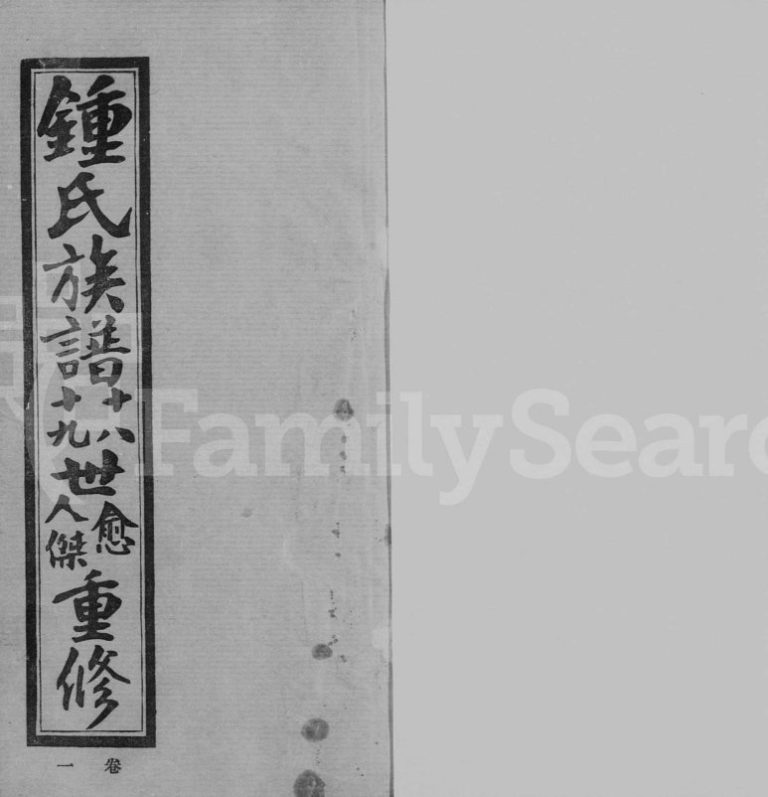 鍾氏族譜十八十九世愈人傑重修
卷一
FamilySearc